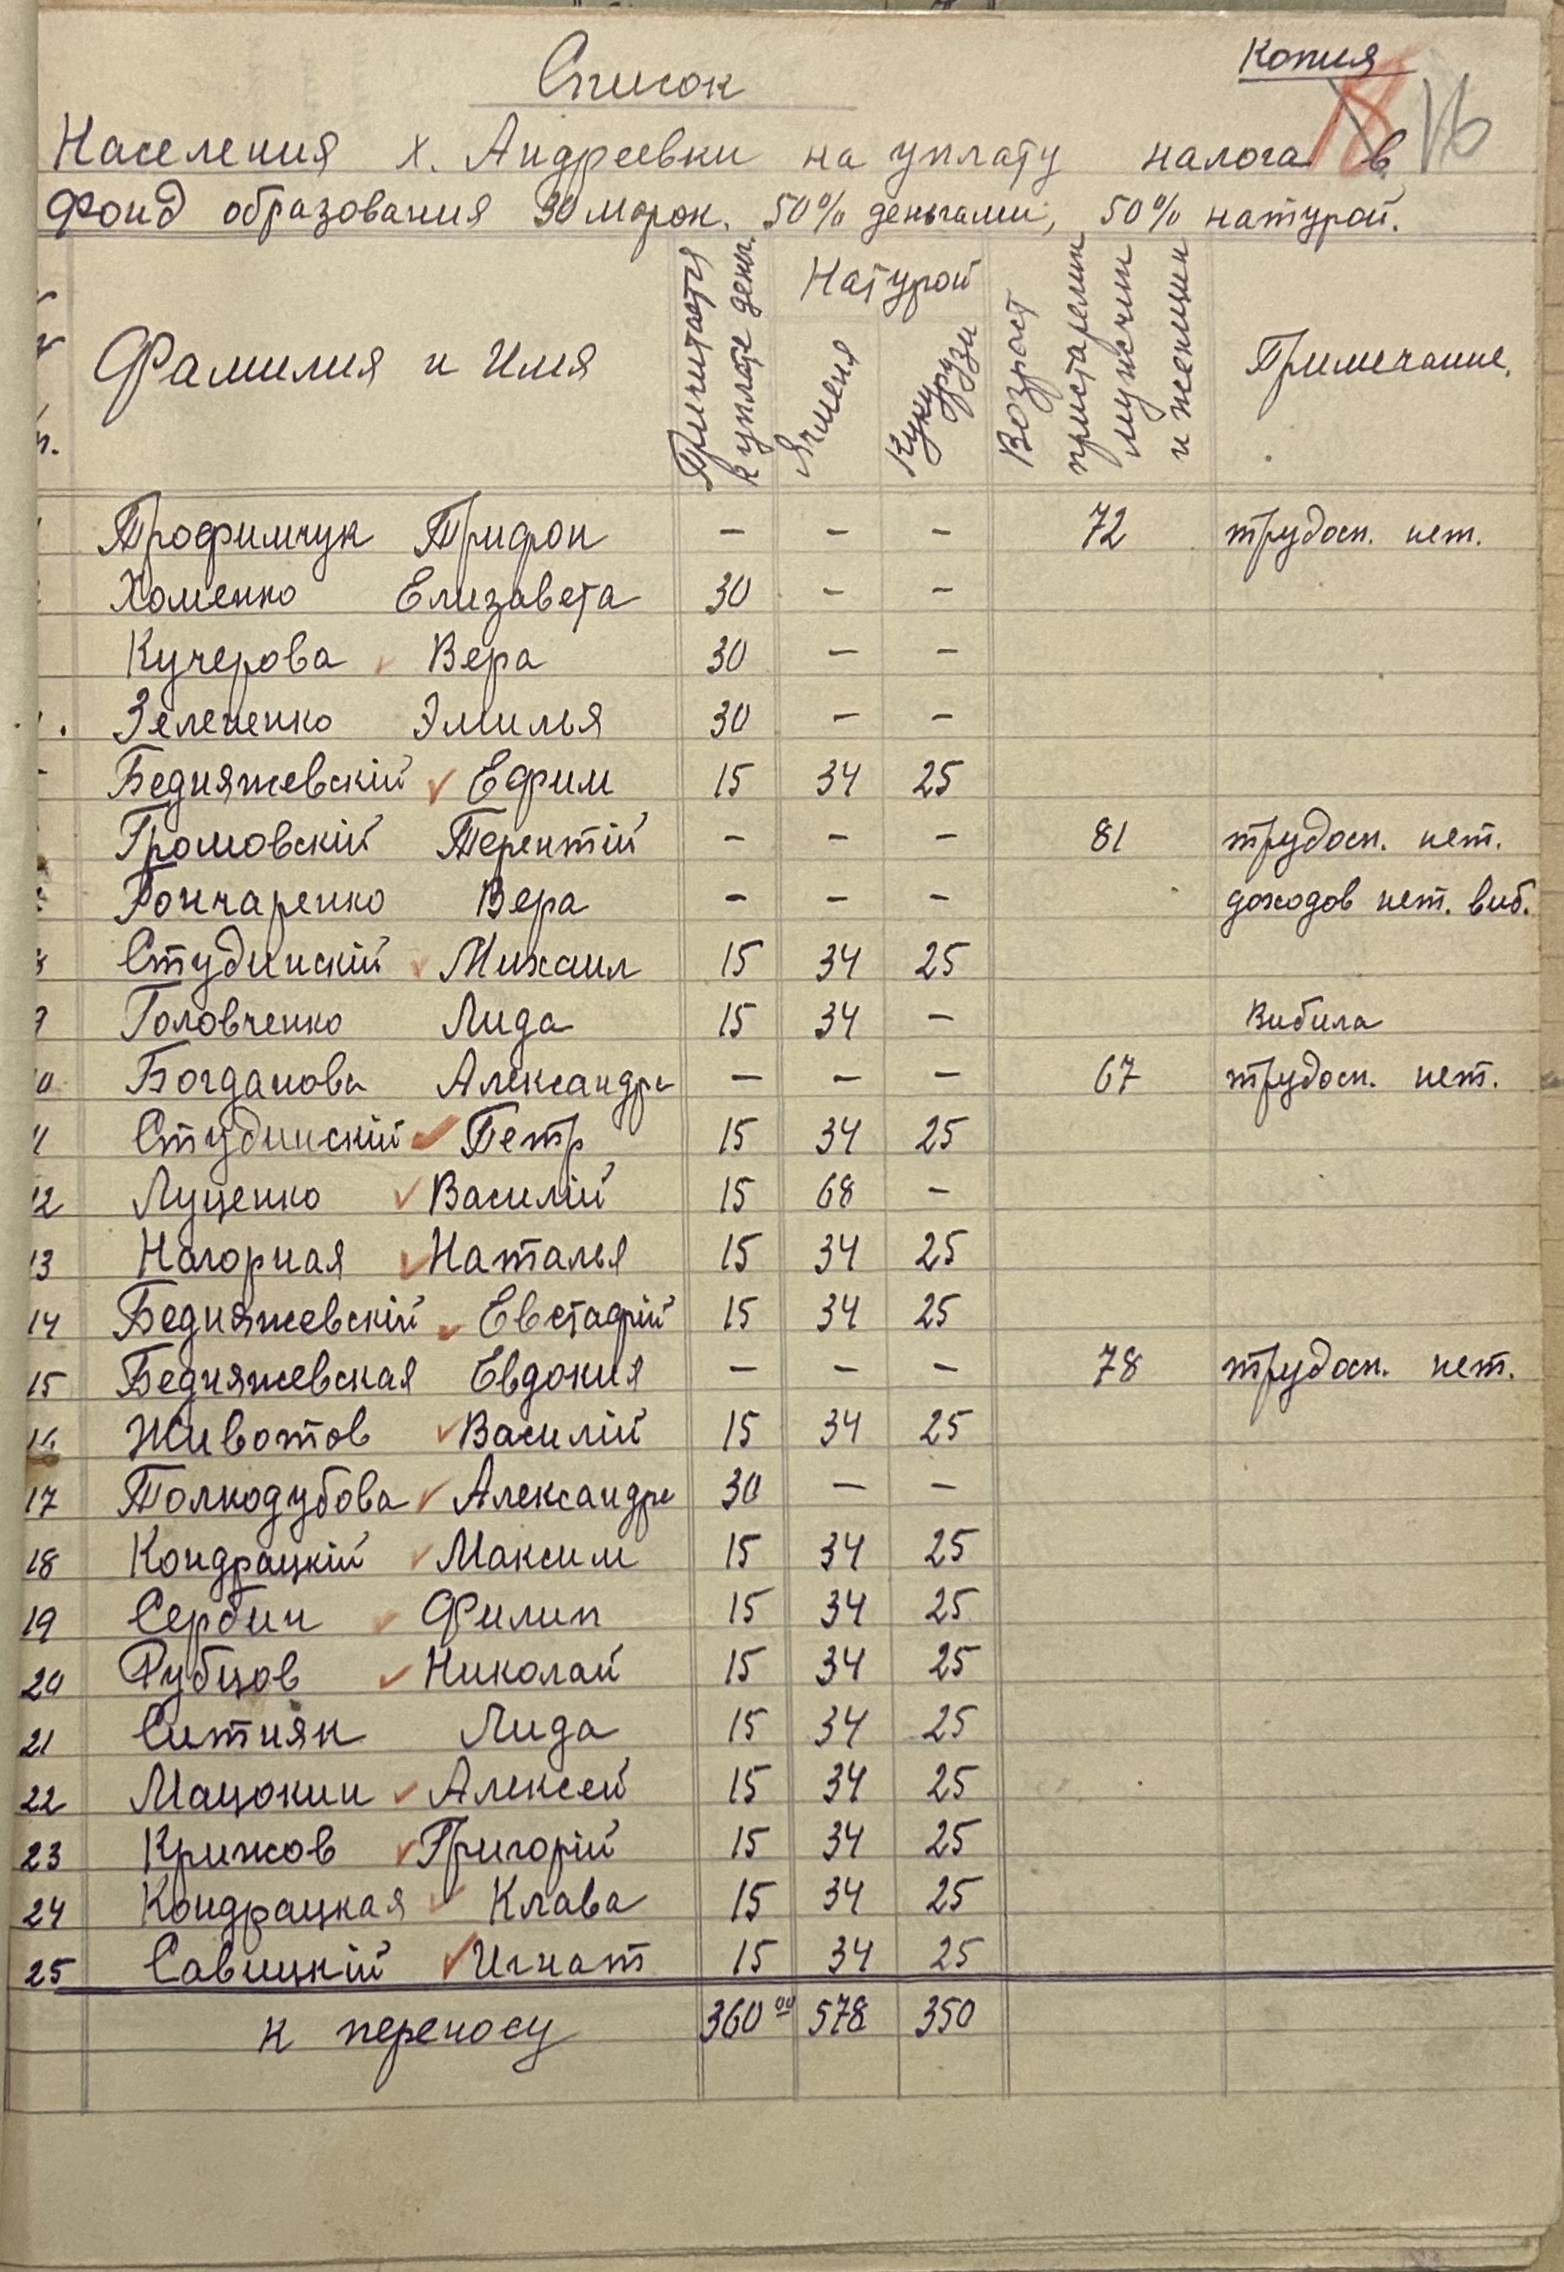 Копия
18 116
Список
Населения х. Андреевки на уплату налога в
фонд образования 30 марок. 50% деньгами, 50% натурой.
Фамилия и Имя
Причитается
к уплате деньг.
Натурой
Ячменя
Кукурузи
Возраст
пристарелих
мужчин
и женщин
Примечание.
Трофимчук Трифон — — — 72 трудосп. нет.
Хоменко Елизавета 30 — —
Кучерова Вера 30 — —
Зелененко Эмилья 30 — —
Бедняжевскій Ефим 15 34 25
Громовскій Терентій — — — 81 трудосп. нет.
Гончаренко Вера — — — доходов нет. виб.
8 Студинскій Михаил 15 34 25
9 Головченко Лида 15 34 — Вибила
10 Богданова Александра — — — 67 трудосп. нет.
11 Студинскій Петр 15 34 25
12 Луценко Василій 15 68 —
13 Нагорная Наталья 15 34 25
14 Бедняжевскій Евстафій 15 34 25
15 Бедняжевская Евдокия — — — 78 трудосп. нет.
16 Животов Василій 15 34 25
17 Толкодубова Александра 30 — —
18 Кондрацкій Максим 15 34 25
19 Сербин Филип 15 34 25
20 Рубцов Николай 15 34 25
21 Ситняк Лида 15 34 25
22 Мацокин Алексей 15 34 25
23 Крижов Григорій 15 34 25
24 Кондрацкая Клава 15 34 25
25 Савицкій Игнат 15 34 25
к переносу 360 00 578 350